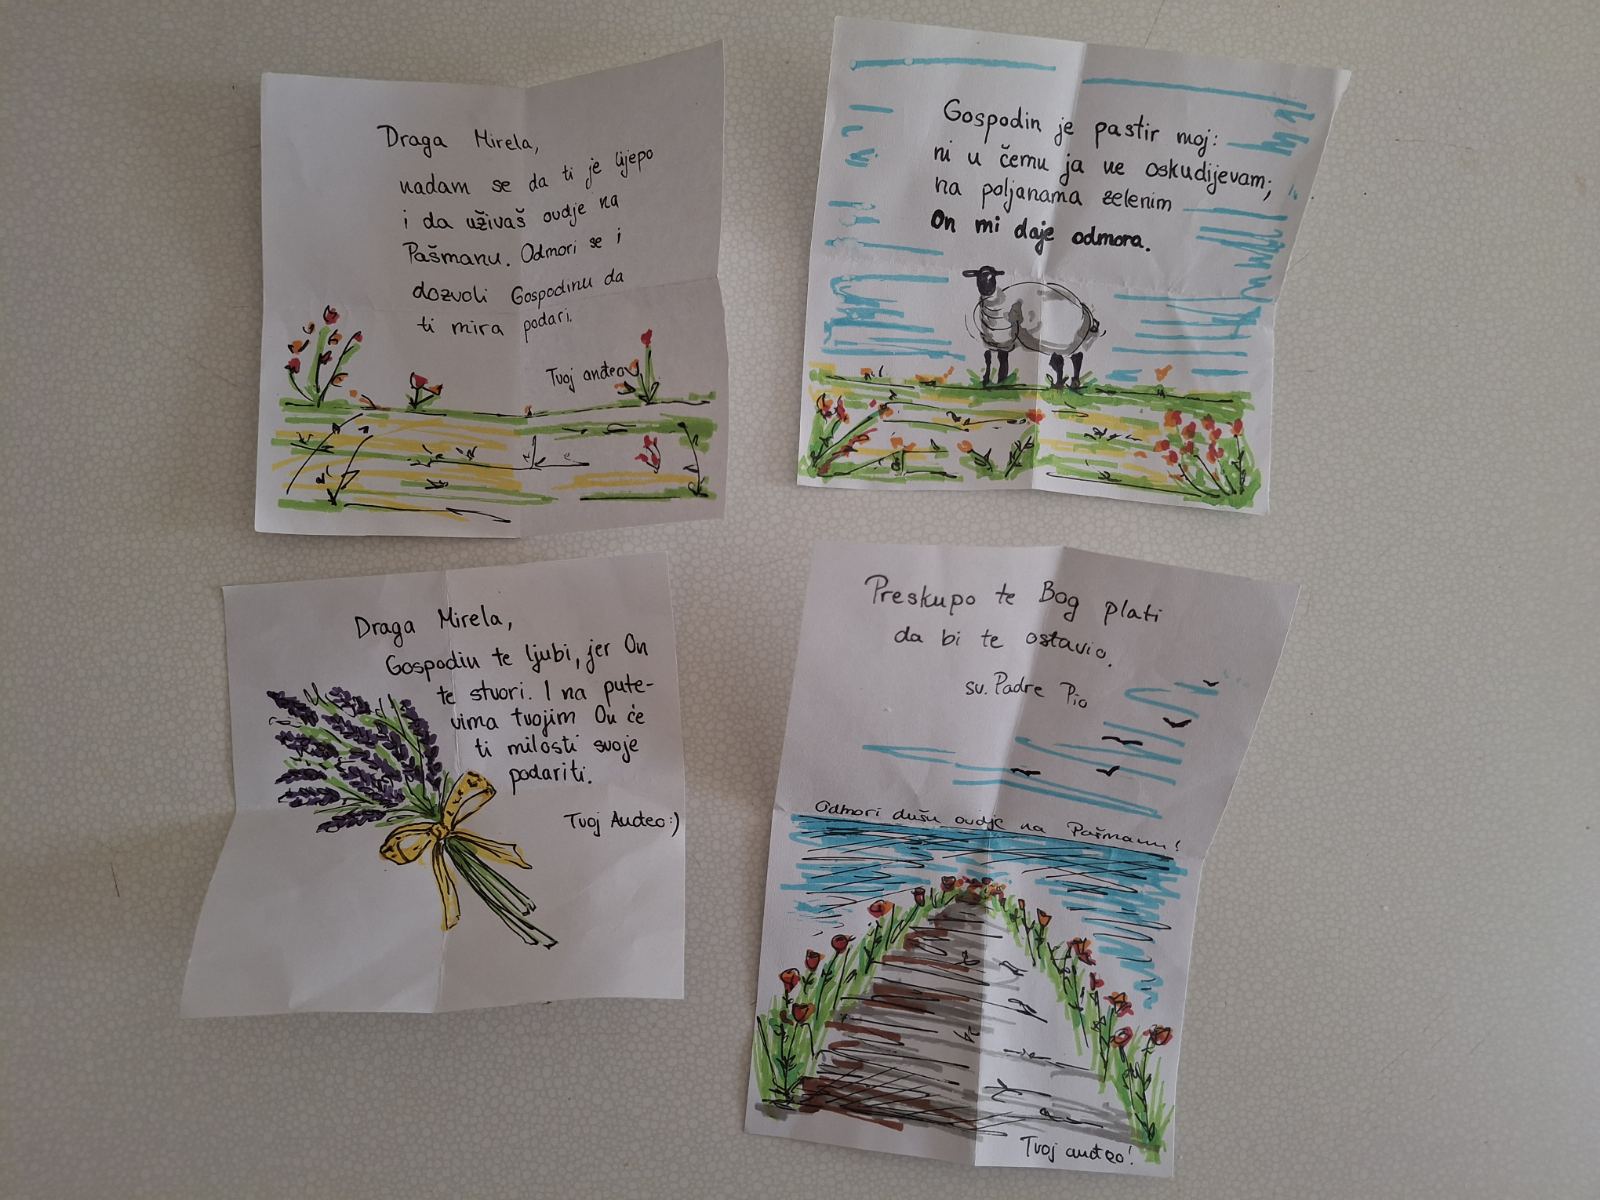 Draga Mirela,
nadam se da ti je lijepo
i da uživaš ovdje na
Pašmanu. Odmori se i
dozvoli Gospodinu da
ti mira podari.
Tvoj anđeo
Gospodin je pastir moj:
ni u čemu ja ne oskudijevam;
na poljanama zelenim
On mi daje odmora.
Draga Mirela,
Gospodin te ljubi, jer On
te stvori. I na pute-
vima tvojim On će
ti milosti svoje
podariti.
Tvoj Anđeo :)
Preskupo te Bog plati
da bi te ostavio.
sv. Padre Pio
Odmori dušu ovdje na Pašmanu!
Tvoj anđeo!